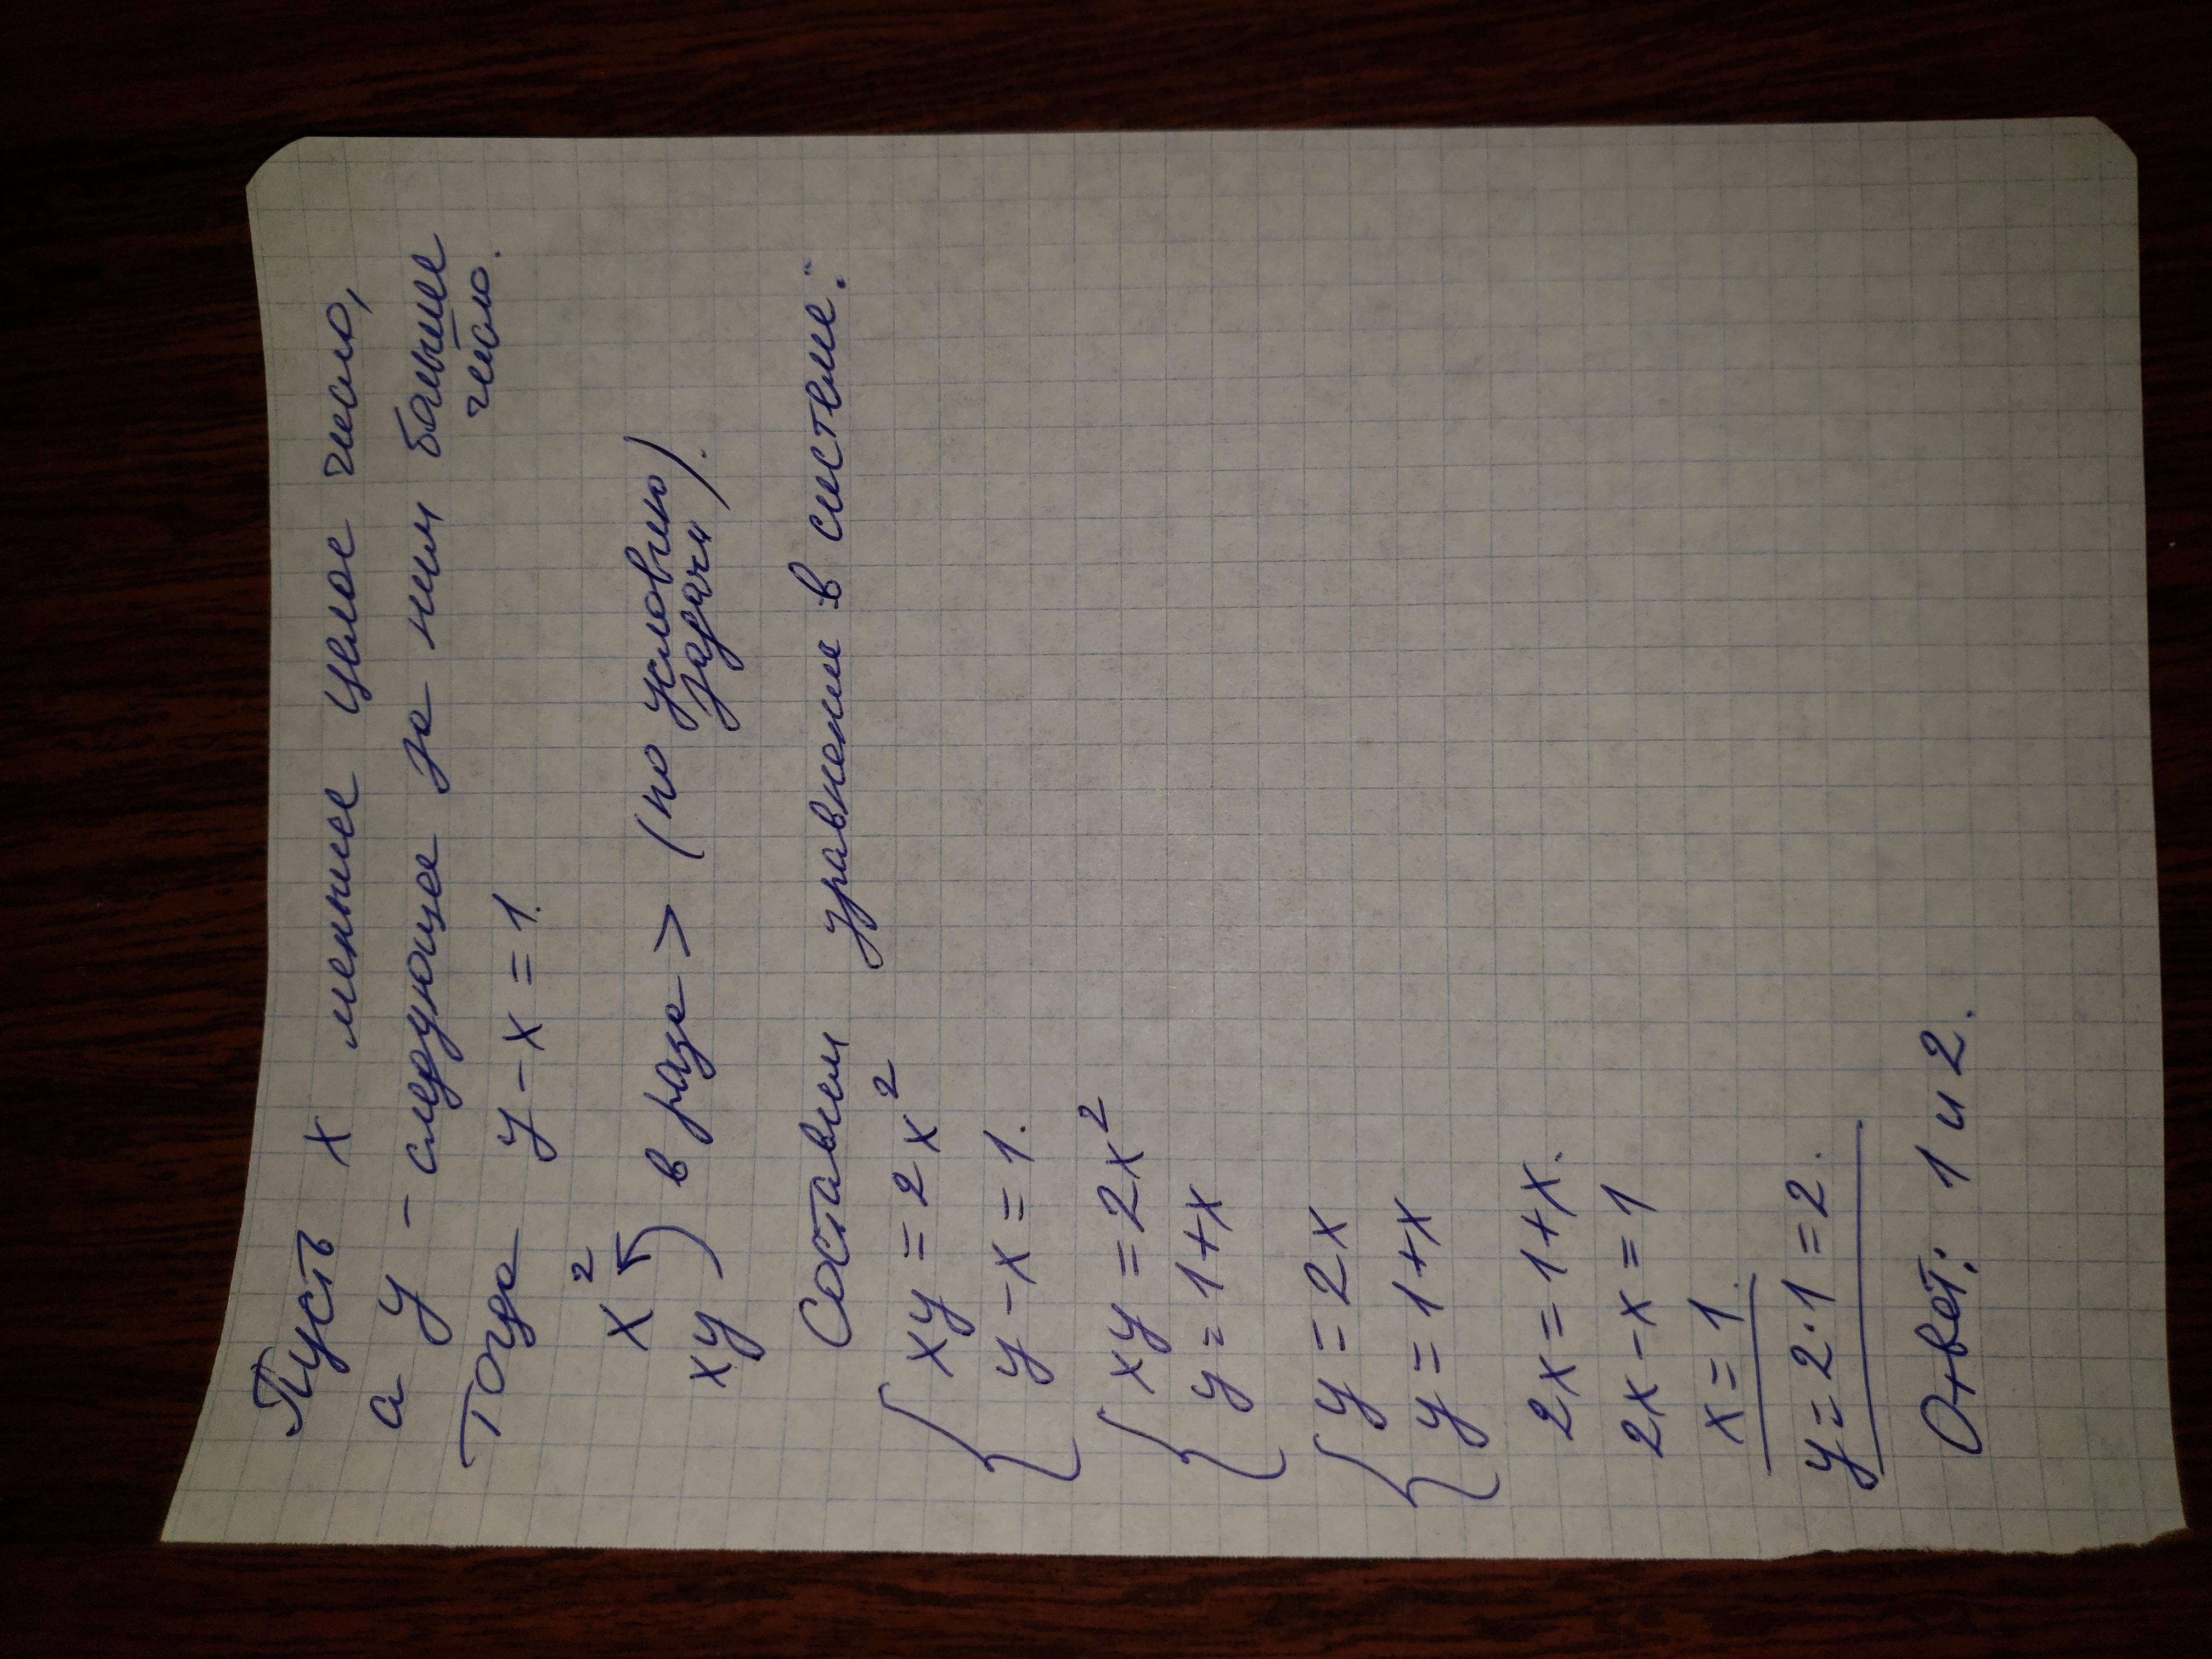 Пусть x меньшее целое число,
а y - следующее за ним большее
число.
Тогда y - x = 1.
x²
xy в 2 раза > (по условию
задачи).
Составим уравнения в системе:
xy = 2x²
y - x = 1.
xy = 2x²
y = 1 + x
y = 2x
y = 1 + x
2x = 1 + x.
2x - x = 1
x = 1.
y = 2 · 1 = 2.
Ответ: 1 и 2.